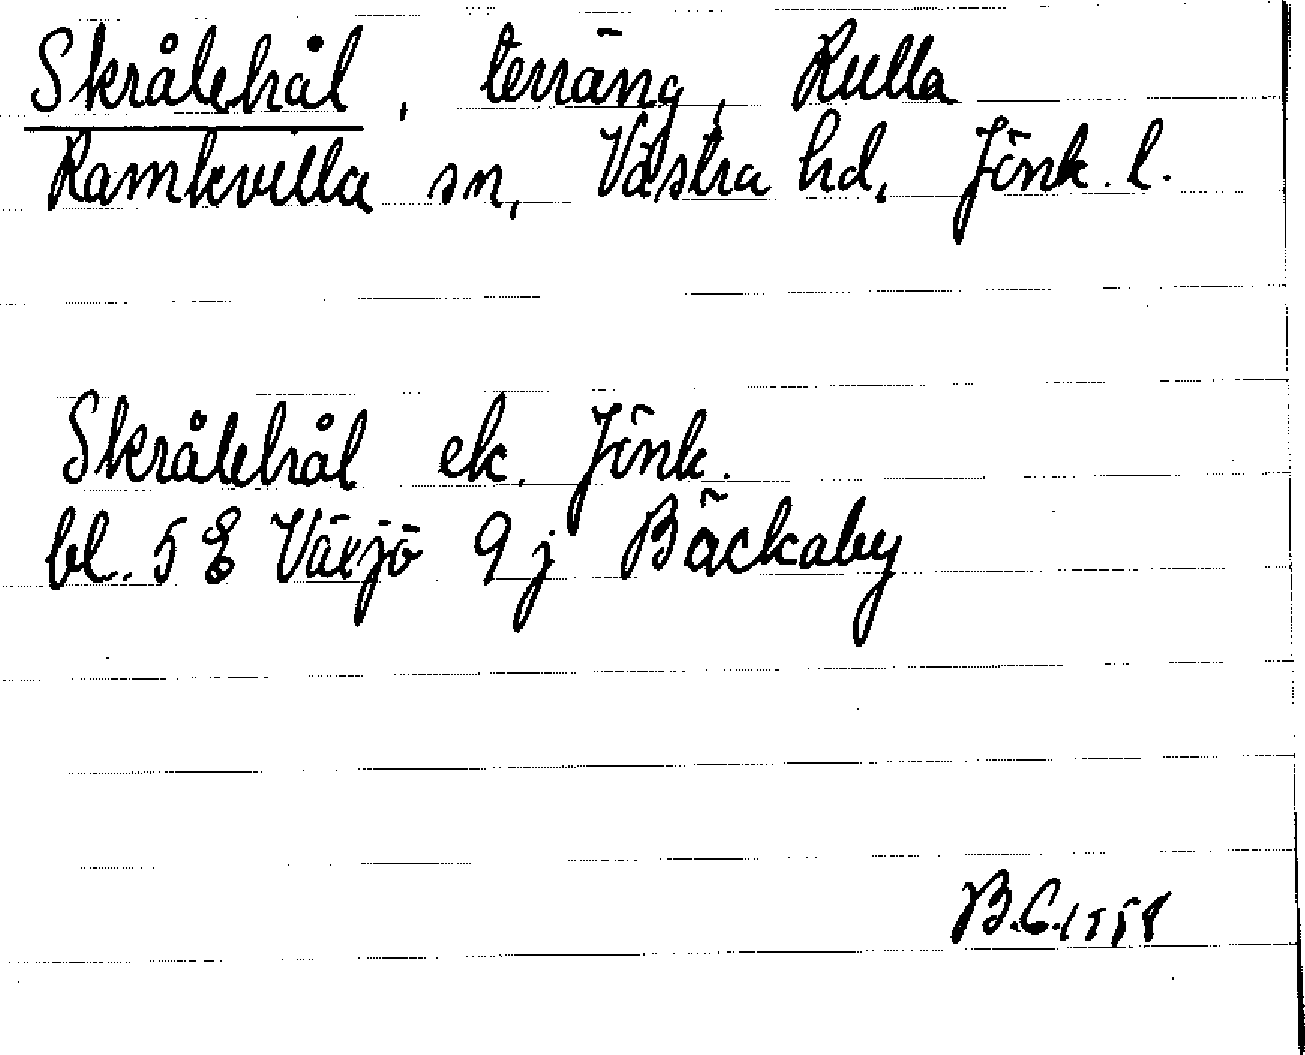 Skrålehål, terräng, Rulla
Ramkvilla sn, Västra hd, Jönk. l.
Skrålehål ek. Jönk.
bl. 5 E Växjö 9 j Bäckaby
B.C.